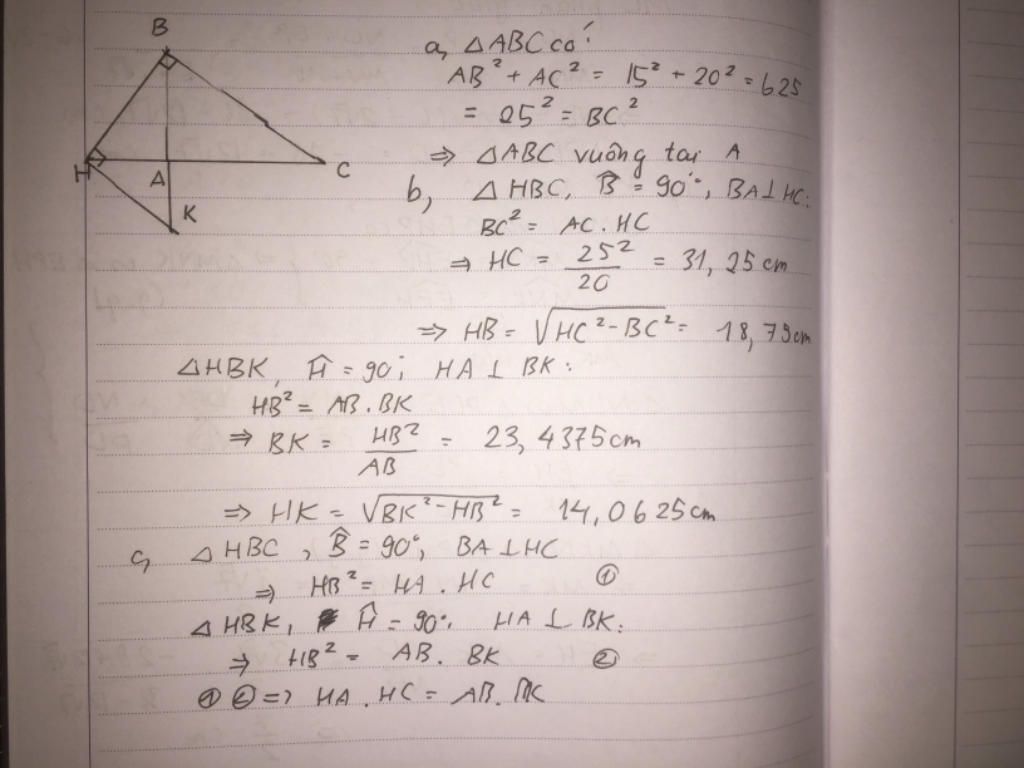 B
H
A
C
K
a, △ABC có:
AB² + AC² = 15² + 20² = 625
= 25² = BC²
⇒ △ABC vuông tại A
b, △HBC, B̂ = 90°, BA⊥HC:
BC² = AC . HC
⇒ HC = 25²/20 = 31,25cm
⇒ HB = √(HC² - BC²) = 18,79cm
△HBK, Ĥ = 90°; HA ⊥ BK:
HB² = AB . BK
⇒ BK = HB²/AB = 23,4375cm
⇒ HK = √(BK² - HB²) = 14,0625cm
c, △HBC, B̂ = 90°, BA⊥HC
⇒ HB² = HA . HC ①
△HBK, Ĥ = 90°. HA ⊥ BK:
⇒ HB² = AB . BK ②
① ② => HA . HC = AB. BK